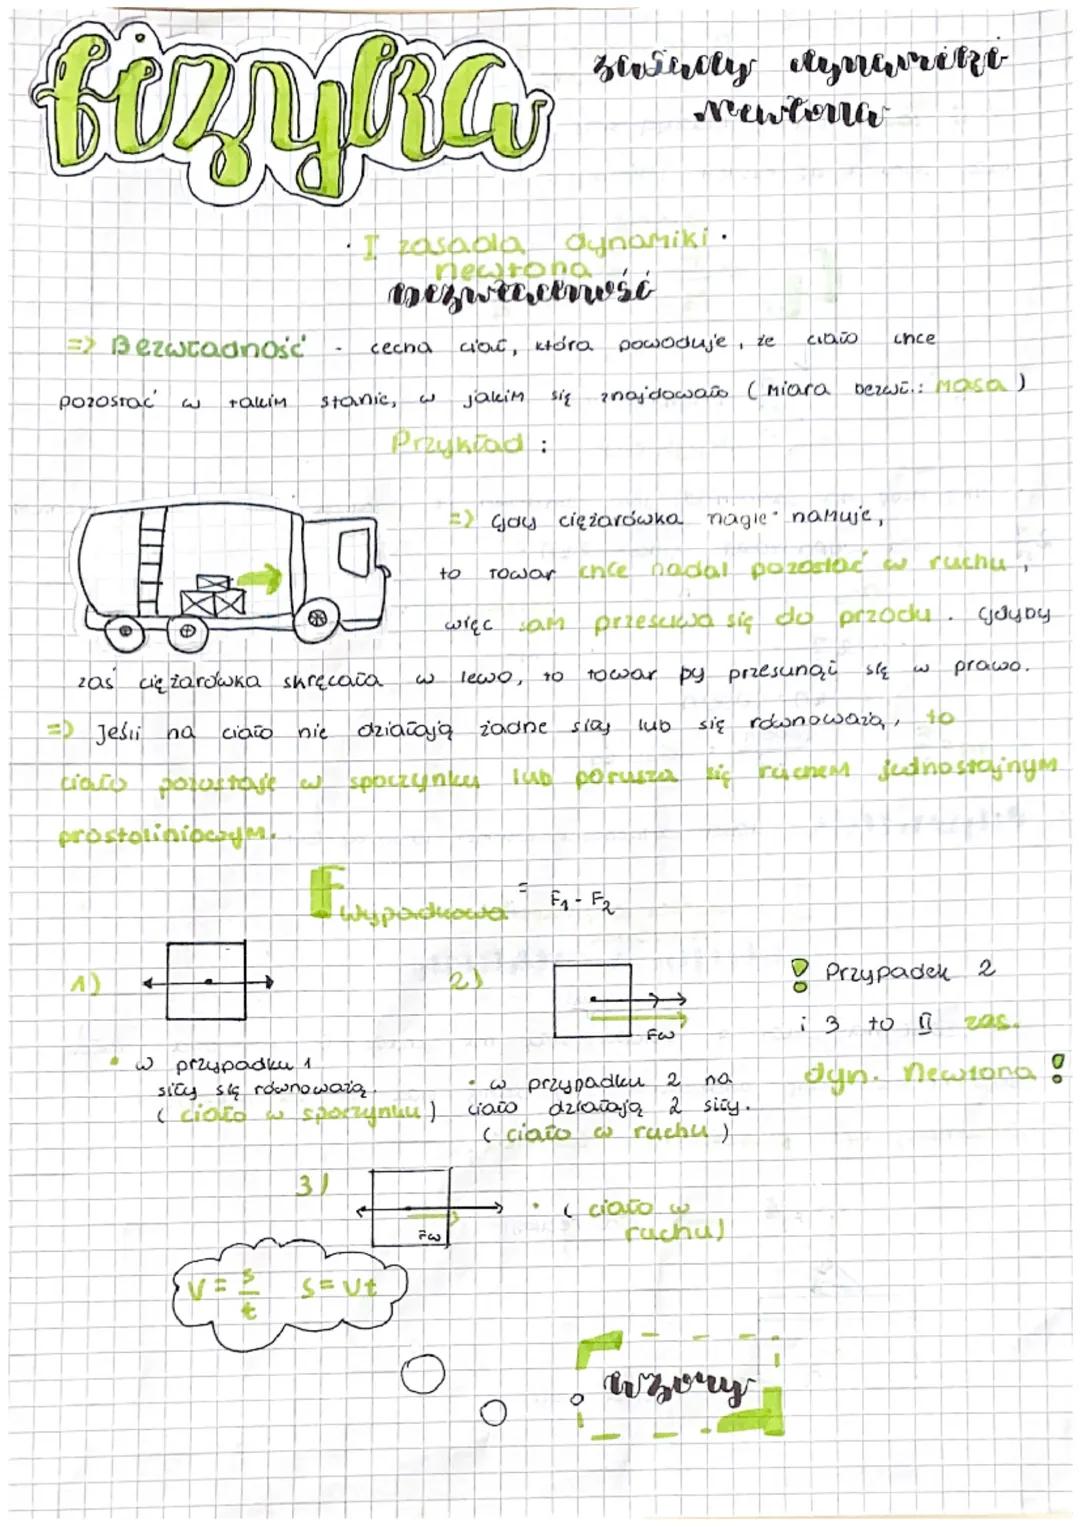 fizyka
zasady dynamiki
Newtona
· I zasada dynamiki ·
newtona
bezwładność
=> Bezwładność - cecha ciał, która powoduje, że ciało chce
pozostać w takim stanie, w jakim się znajdowało (miara bezwł.: masa)
Przykład :
=> Gdy ciężarówka nagle hamuje,
to towar chce nadal pozostać w ruchu,
więc sam przesuwa się do przodu. Gdyby
zaś ciężarówka skręcała w lewo, to towar by przesunął się w prawo.
=> Jeśli na ciało nie działają żadne siły lub się równoważą, to
ciało pozostaje w spoczynku lub porusza się ruchem jednostajnym
prostoliniowym.
Fwypadkowa = F1 - F2
1)
2)
Fw
! Przypadek 2
i 3 to II zas.
dyn. Newtona !
• w przypadku 1
siły się równoważą.
(ciało w spoczynku)
• w przypadku 2 na
ciało działają 2 siły.
(ciało w ruchu)
3)
Fw
• (ciało w
ruchu)
V = s/t S = Vt
wzory